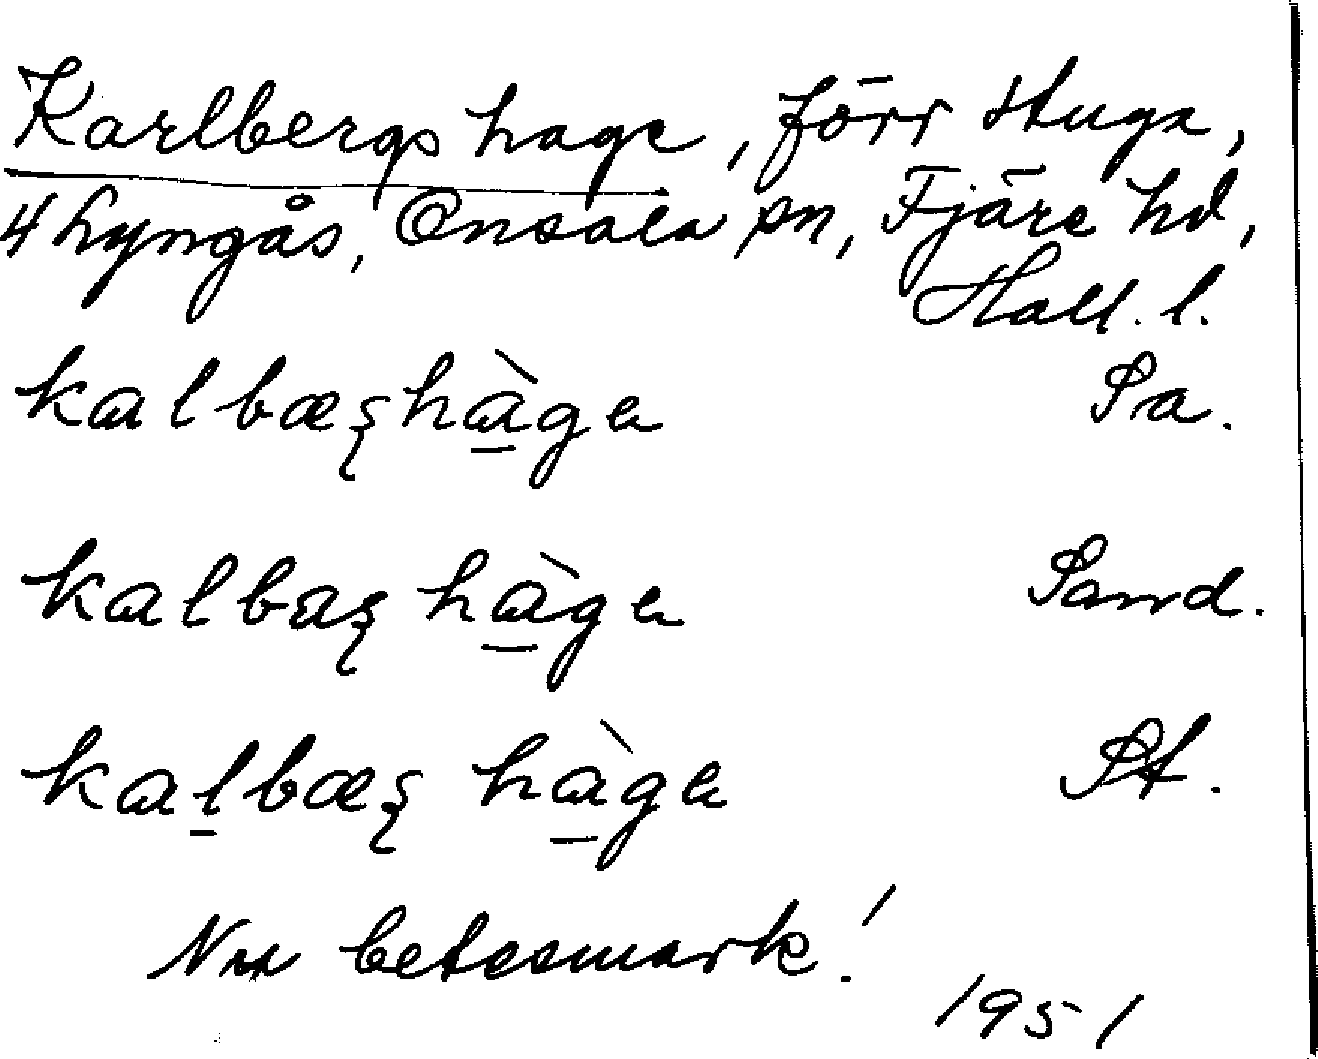 Karlbergs hage, förr stuga,
4 Lyngås, Onsala sn, Fjäre hd,
Hall. l.
kalbæʂhàga Sa.
kalbaʂ hàga Sand.
kalbæʂ hàga St.
Nu betesmark!
1951